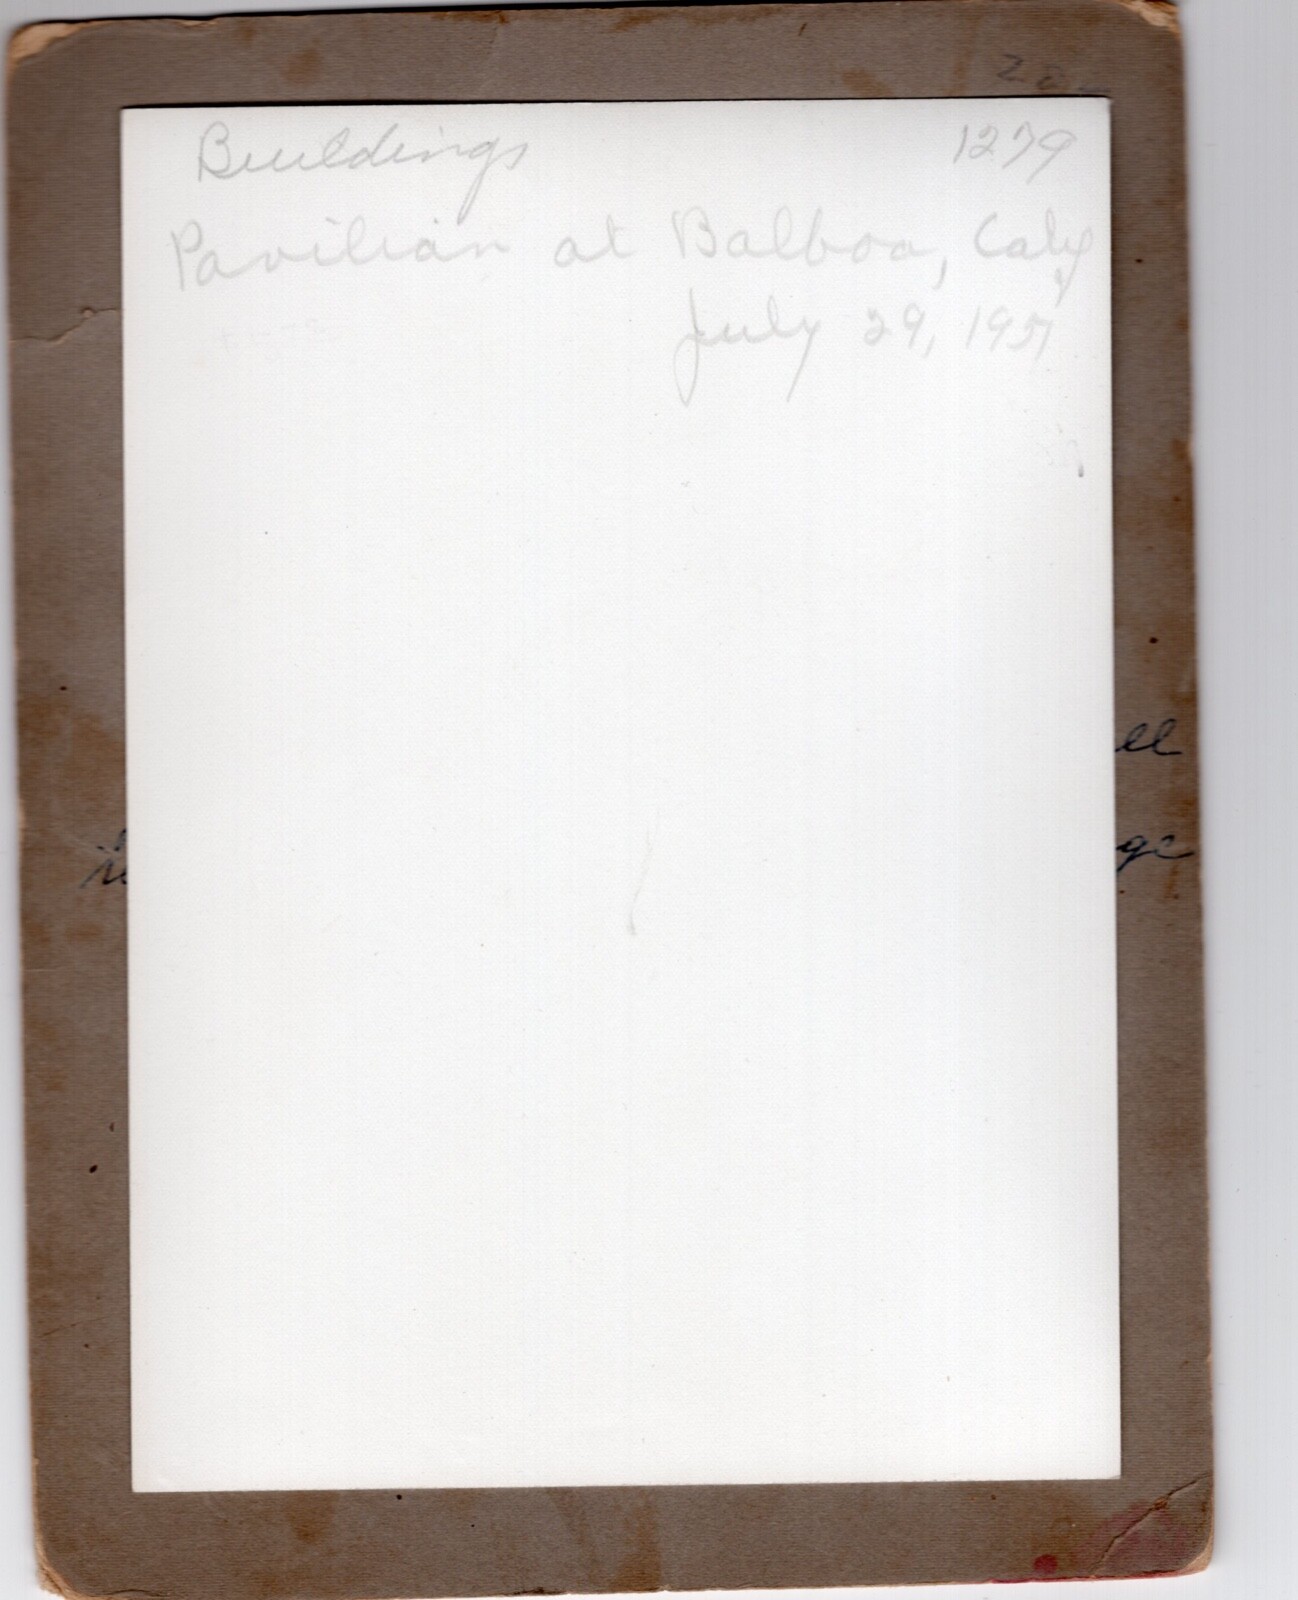 Buildings 1279
Pavilion at Balboa, Calif
July 29, 1951
ell
ge